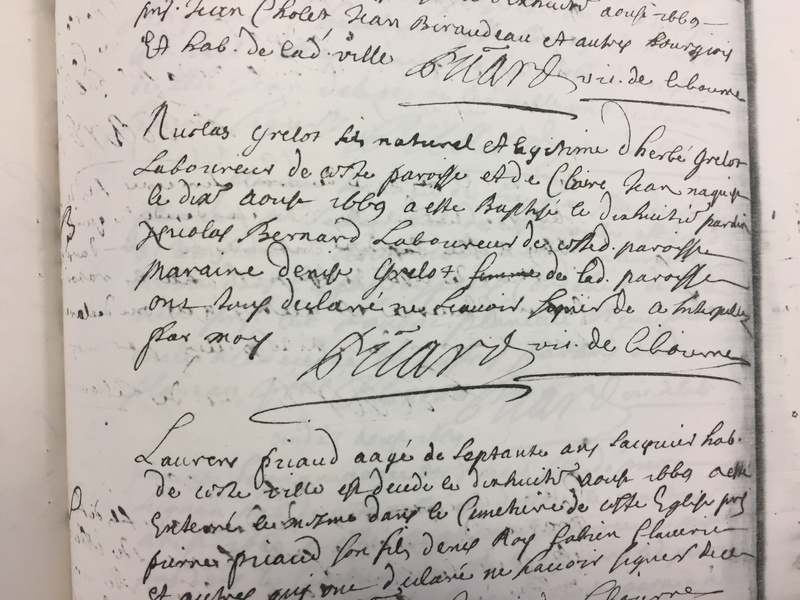 aoust 1669
pnt. Jean Cholet Jean Biraudeau et autres bourgois
Et hab. de lad. ville Piuard vic. de libourne
Nicolas Grelot fils naturel et legitime d'herbé Grelot
Laboureur de cette paroisse et de Claire Jean naquit
le dixe aoust 1669 a esté Baptisé le dixhuitie pardin
Nicolas Bernard Laboureur de cetted. paroisse
maraine denise Grelot femme de lad. paroisse
ont tous declaré ne scavoir signer de ce Interpellez
par moy Piuard vic. de libourne
B
Laurens priaud aagé de septante ans sacquier hab.
de cette ville est decedé le dixhuitie aoust 1669 a esté
Enterré le mesme dans le Cimetiere de cette Eglise pnt
pierre priaud son fils denis Roy fabien
et autres qui ont declaré ne scavoir signer